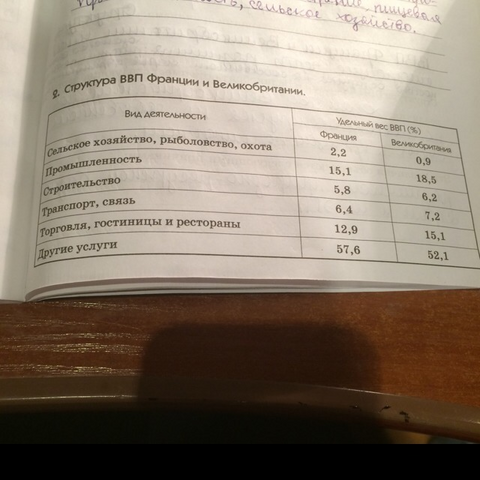 пищевая
сельское хозяйство.
2. Структура ВВП Франции и Великобритании.
Вид деятельности Удельный вес ВВП (%)
Франция Великобритания
Сельское хозяйство, рыболовство, охота 2,2 0,9
Промышленность 15,1 18,5
Строительство 5,8 6,2
Транспорт, связь 6,4 7,2
Торговля, гостиницы и рестораны 12,9 15,1
Другие услуги 57,6 52,1